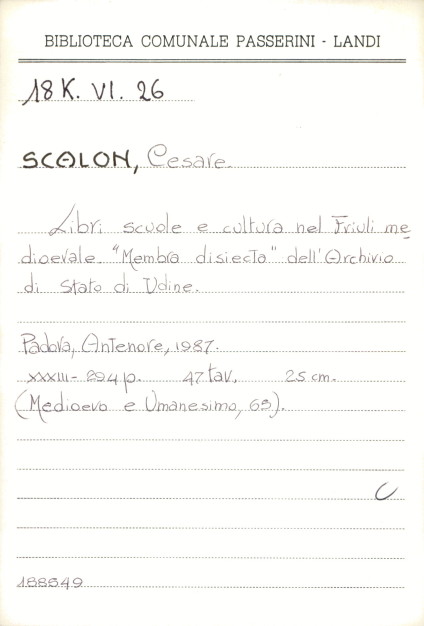 BIBLIOTECA COMUNALE PASSERINI - LANDI
18 K. VI. 26
SCALON, Cesare.
Libri scuole e cultura nel Friuli me
dioevale. "Membra disiecta" dell'Archivio
di Stato di Udine.
Padova, Antenore, 1987.
XXXIII- 294 p. 47 tav. 25 cm.
(Medioevo e Umanesimo, 65).
C
188549